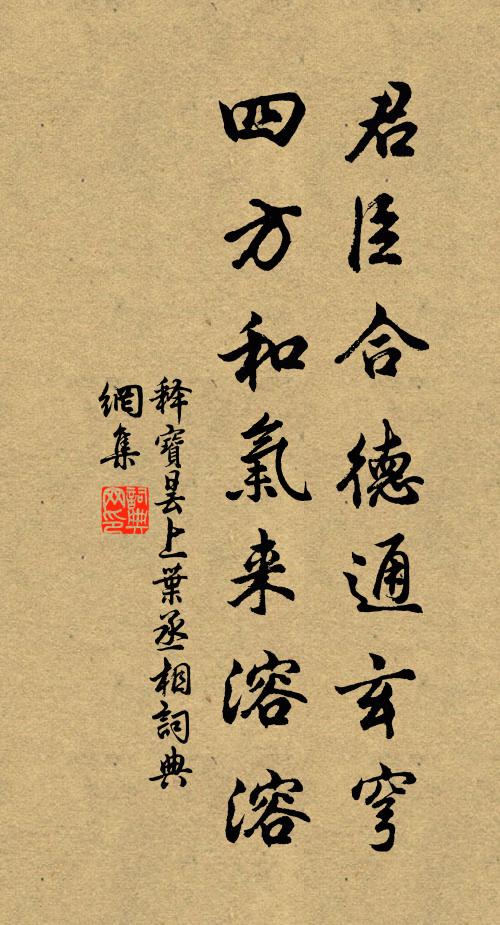 君臣合德通玄穹
四方和氣来溶溶
释寶昙上葉丞相詞典
網集
詞典
网印